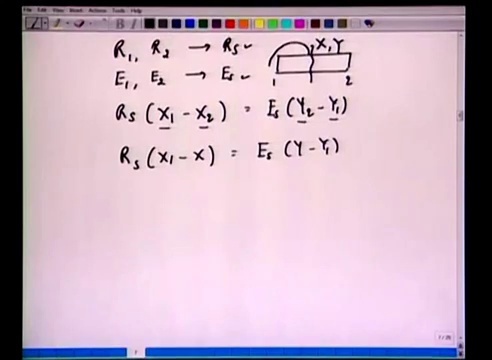 File Edit View Insert Actions Tools Help
R₁, R₂ → Rs ✓
X, Y
E₁, E₂ → Es ✓
1 2
Rs (X₁ - X₂) = Es (Y₂ - Y₁)
Rs (X₁ - X) = Es (Y - Y₁)